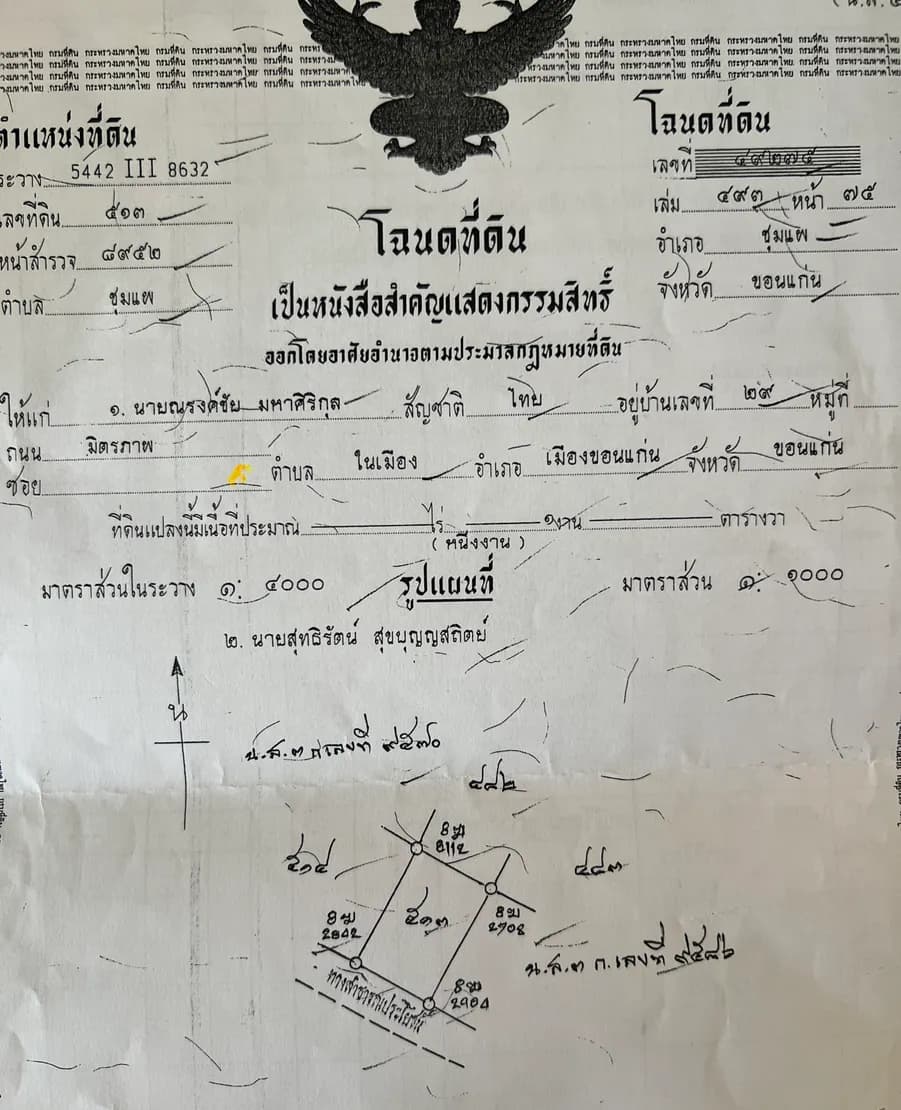 กระทรวงมหาดไทย กรมที่ดิน กระทรวงมหาดไทย กรมที่ดิน
ตำแหน่งที่ดิน
ระวาง 5442 III 8632
เลขที่ดิน ๕๑๓
หน้าสำรวจ ๘๙๕๒
ตำบล ชุมแพ
โฉนดที่ดิน
เลขที่ ๔๙๒๗๕
เล่ม ๔๙๓ หน้า ๗๕
อำเภอ ชุมแพ
จังหวัด ขอนแก่น
โฉนดที่ดิน
เป็นหนังสือสำคัญแสดงกรรมสิทธิ์
ออกโดยอาศัยอำนาจตามประมวลกฎหมายที่ดิน
ให้แก่ ๑. นายณรงค์ชัย มหาศิริกุล สัญชาติ ไทย อยู่บ้านเลขที่ ๒๙ หมู่ที่
ถนน มิตรภาพ
ซอย ตำบล ในเมือง อำเภอ เมืองขอนแก่น จังหวัด ขอนแก่น
ที่ดินแปลงนี้มีเนื้อที่ประมาณ ไร่ ๑ งาน ตารางวา
( หนึ่งงาน )
มาตราส่วนในระวาง ๑: ๔๐๐๐ รูปแผนที่ มาตราส่วน ๑: ๑๐๐๐
๒. นายสุทธิรัตน์ สุขบุญญสถิตย์
น
น.ส.๓ ก เลขที่ ๙๕๗๐
๔๘๒
๕๑๔
๔๘๓
๕๑๓
น.ส.๓ ก. เลขที่ ๙๕๘๖
ทางสาธารณประโยชน์